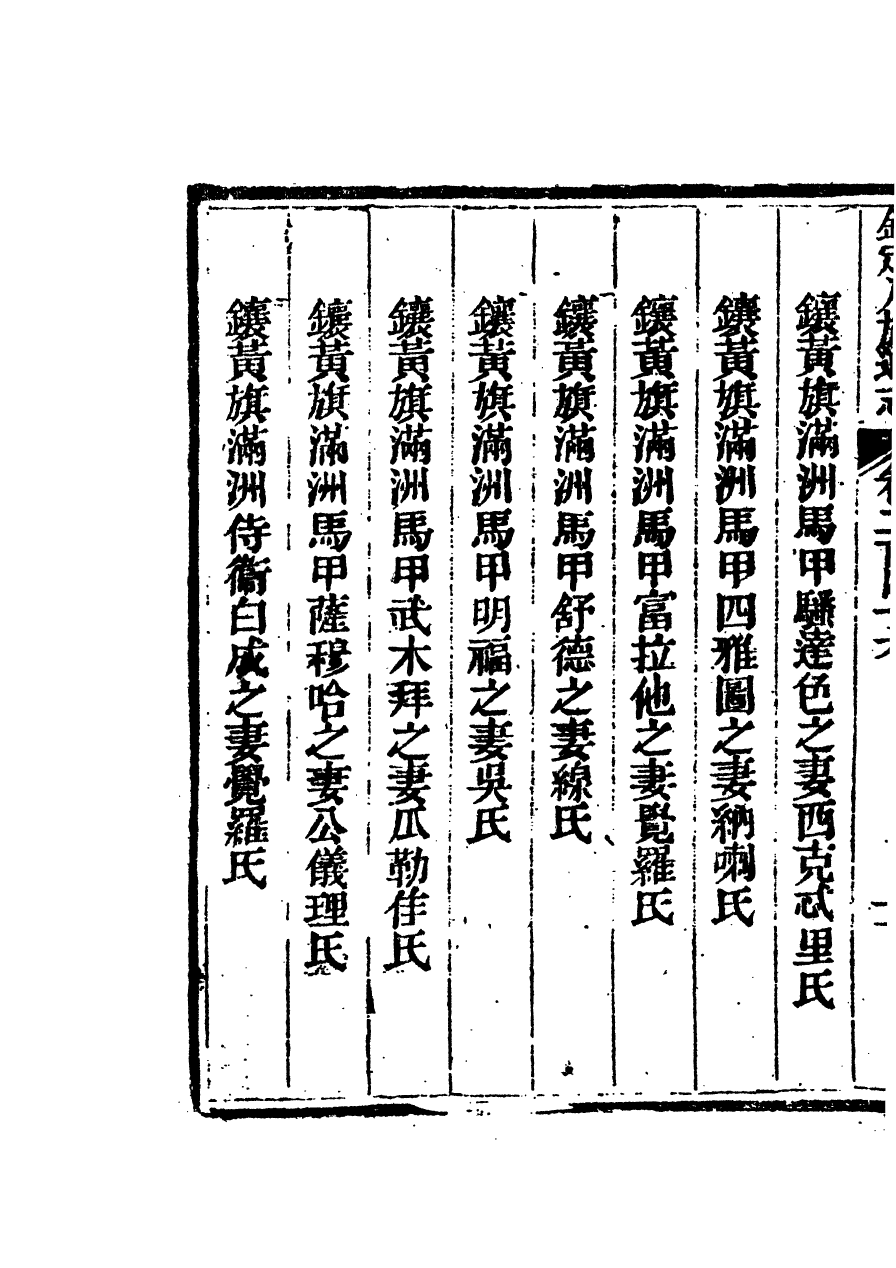 鑲黃旗滿洲馬甲騷達色之妻西克忒里氏
鑲黃旗滿洲馬甲四雅圖之妻納喇氏
鑲黃旗滿洲馬甲富拉他之妻覺羅氏
鑲黃旗滿洲馬甲舒德之妻線氏
鑲黃旗滿洲馬甲明福之妻吳氏
鑲黃旗滿洲馬甲武木拜之妻瓜勒佳氏
鑲黃旗滿洲馬甲薩穆哈之妻公儀理氏
鑲黃旗滿洲侍衞白成之妻覺羅氏